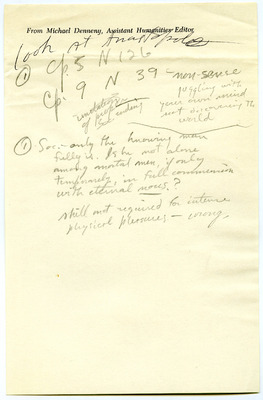 From Michael Denneny, Assistant Humanities Editor
look at
① Cp. 5 N 126
Cp. 9 N 39 - non-sense
juggling w/
your own mind
not discovering the
world
① Soc. - only the knowing man
fully is. Is he not alone
among mortal men, if only
temporarily, in full communion
with eternal nous?
skill not required for intense
physical pleasures - wrong.